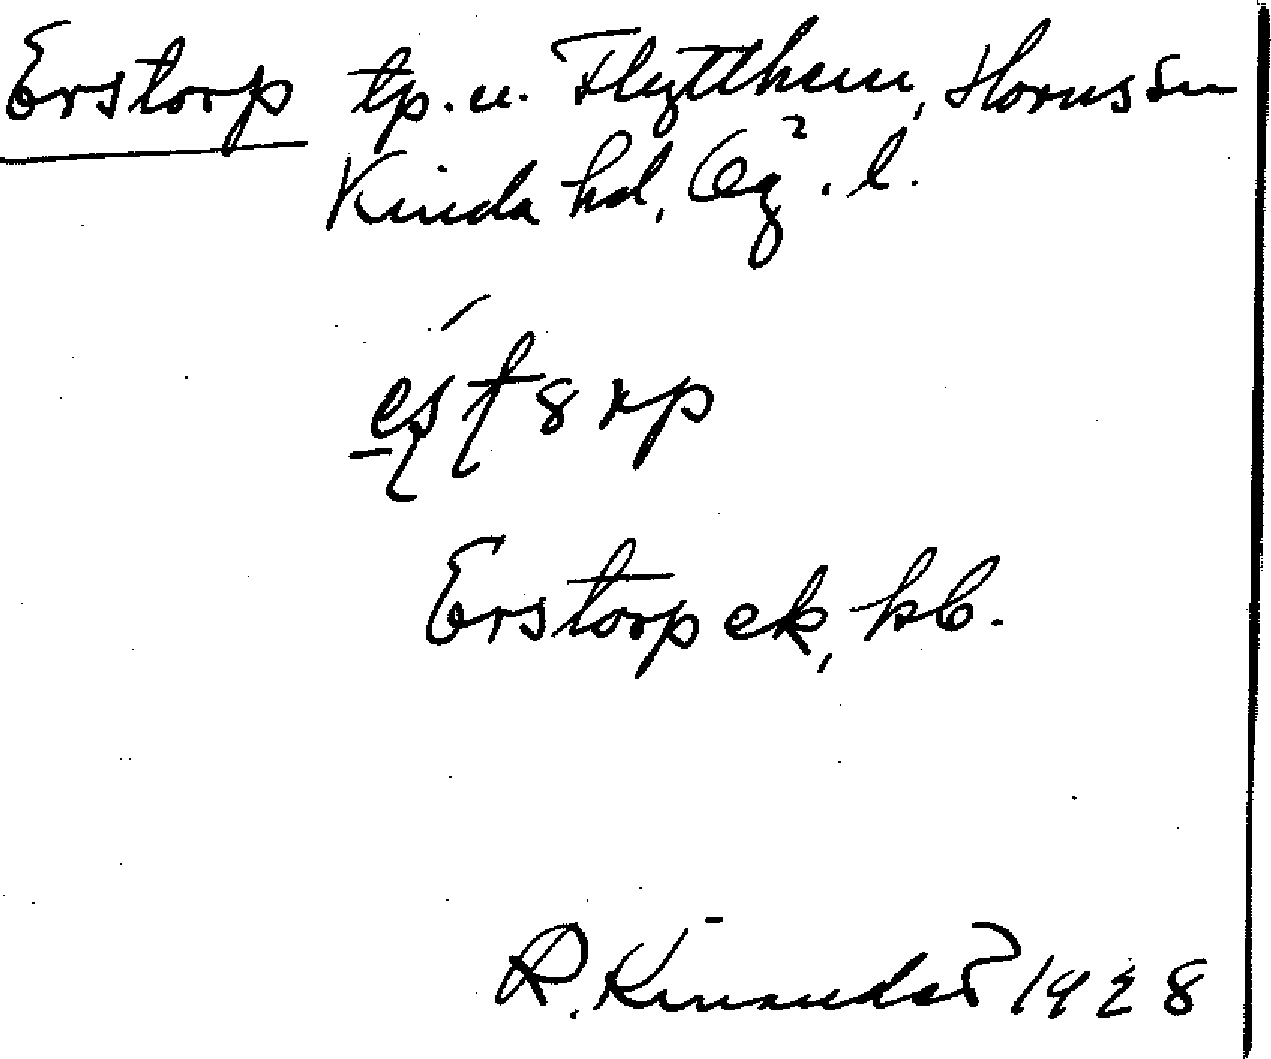 Erstorp tp. u. Flytthem, Horns sn
Kinda hd, Ög. l.
Erstorp ek, kb.
R. Kinander 1928